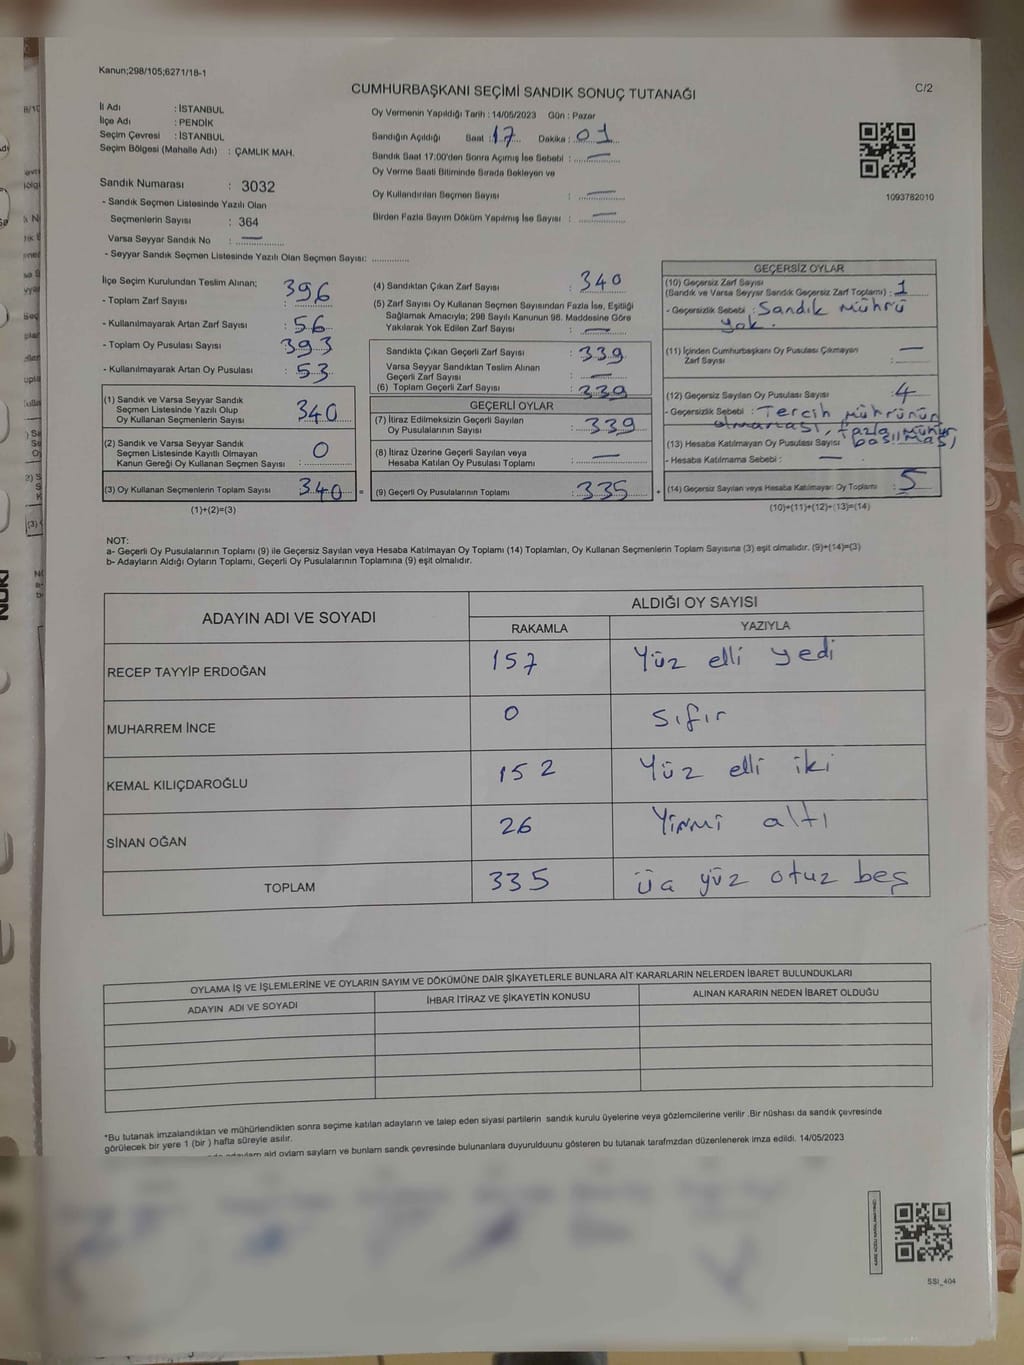 Kanun;298/105;6271/18-1
CUMHURBAŞKANI SEÇİMİ SANDIK SONUÇ TUTANAĞI
C/2
İl Adı : İSTANBUL
İlçe Adı : PENDİK
Seçim Çevresi : İSTANBUL
Seçim Bölgesi (Mahalle Adı) : ÇAMLIK MAH.
Sandık Numarası : 3032
- Sandık Seçmen Listesinde Yazılı Olan
Seçmenlerin Sayısı : 364
Varsa Seyyar Sandık No : —
- Seyyar Sandık Seçmen Listesinde Yazılı Olan Seçmen Sayısı: ..............
Oy Vermenin Yapıldığı Tarih : 14/05/2023 Gün : Pazar
Sandığın Açıldığı Saat : 17 Dakika : 01
Sandık Saat 17:00'den Sonra Açımış İse Sebebi : —
Oy Verme Saati Bitiminde Sırada Bekleyen ve
Oy Kullandırılan Seçmen Sayısı : —
Birden Fazla Sayım Döküm Yapılmış İse Sayısı : —
1093782010
İlçe Seçim Kurulundan Teslim Alınan;
- Toplam Zarf Sayısı : 396
- Kullanılmayarak Artan Zarf Sayısı : 56
- Toplam Oy Pusulası Sayısı : 393
- Kullanılmayarak Artan Oy Pusulası : 53
(1) Sandık ve Varsa Seyyar Sandık
Seçmen Listesinde Yazılı Olup
Oy Kullanan Seçmenlerin Sayısı : 340
(2) Sandık ve Varsa Seyyar Sandık
Seçmen Listesinde Kayıtlı Olmayan
Kanun Gereği Oy Kullanan Seçmen Sayısı : 0
(3) Oy Kullanan Seçmenlerin Toplam Sayısı : 340
(1)+(2)=(3)
(4) Sandıktan Çıkan Zarf Sayısı : 340
(5) Zarf Sayısı Oy Kullanan Seçmen Sayısından Fazla İse, Eşitliği
Sağlamak Amacıyla; 298 Sayılı Kanunun 98. Maddesine Göre
Yakılarak Yok Edilen Zarf Sayısı : —
Sandıkta Çıkan Geçerli Zarf Sayısı : 339
Varsa Seyyar Sandıktan Teslim Alınan
Geçerli Zarf Sayısı : —
(6) Toplam Geçerli Zarf Sayısı : 339
GEÇERLİ OYLAR
(7) İtiraz Edilmeksizin Geçerli Sayılan
Oy Pusulalarının Sayısı : 339
(8) İtiraz Üzerine Geçerli Sayılan veya
Hesaba Katılan Oy Pusulası Toplamı : —
(9) Geçerli Oy Pusulalarının Toplamı : 335
GEÇERSİZ OYLAR
(10) Geçersiz Zarf Sayısı
(Sandık ve Varsa Seyyar Sandık Geçersiz Zarf Toplamı) : 1
- Geçersizlik Sebebi : Sandık mührü
yok.
(11) İçinden Cumhurbaşkanı Oy Pusulası Çıkmayan
Zarf Sayısı : —
(12) Geçersiz Sayılan Oy Pusulası Sayısı : 4
- Geçersizlik Sebebi : Tercih mührünün
olmaması, fazla mühür
basılması,
(13) Hesaba Katılmayan Oy Pusulası Sayısı
- Hesaba Katılmama Sebebi : —
(14) Geçersiz Sayılan veya Hesaba Katılmayan Oy Toplamı : 5
(10)+(11)+(12)+(13)=(14)
NOT:
a- Geçerli Oy Pusulalarının Toplamı (9) ile Geçersiz Sayılan veya Hesaba Katılmayan Oy Toplamı (14) Toplamları, Oy Kullanan Seçmenlerin Toplam Sayısına (3) eşit olmalıdır. (9)+(14)=(3)
b- Adayların Aldığı Oyların Toplamı, Geçerli Oy Pusulalarının Toplamına (9) eşit olmalıdır.
ADAYIN ADI VE SOYADI
ALDIĞI OY SAYISI
RAKAMLA YAZIYLA
RECEP TAYYİP ERDOĞAN 157 Yüz elli yedi
MUHARREM İNCE 0 Sıfır
KEMAL KILIÇDAROĞLU 152 Yüz elli iki
SİNAN OĞAN 26 Yirmi altı
TOPLAM 335 üç yüz otuz beş
OYLAMA İŞ VE İŞLEMLERİNE VE OYLARIN SAYIM VE DÖKÜMÜNE DAİR ŞİKAYETLERLE BUNLARA AİT KARARLARIN NELERDEN İBARET BULUNDUKLARI
ADAYIN ADI VE SOYADI İHBAR İTİRAZ VE ŞİKAYETİN KONUSU ALINAN KARARIN NEDEN İBARET OLDUĞU
*Bu tutanak imzalandıktan ve mühürlendikten sonra seçime katılan adayların ve talep eden siyasi partilerin sandık kurulu üyelerine veya gözlemcilerine verilir .Bir nüshası da sandık çevresinde
görülecek bir yere 1 (bir ) hafta süreyle asılır.
ald oylam saylam ve bunlam sandk çevresinde bulunanlara duyurulduunu gösteren bu tutanak tarafmzdan düzenlenerek imza edildi. 14/05/2023
SSI_404